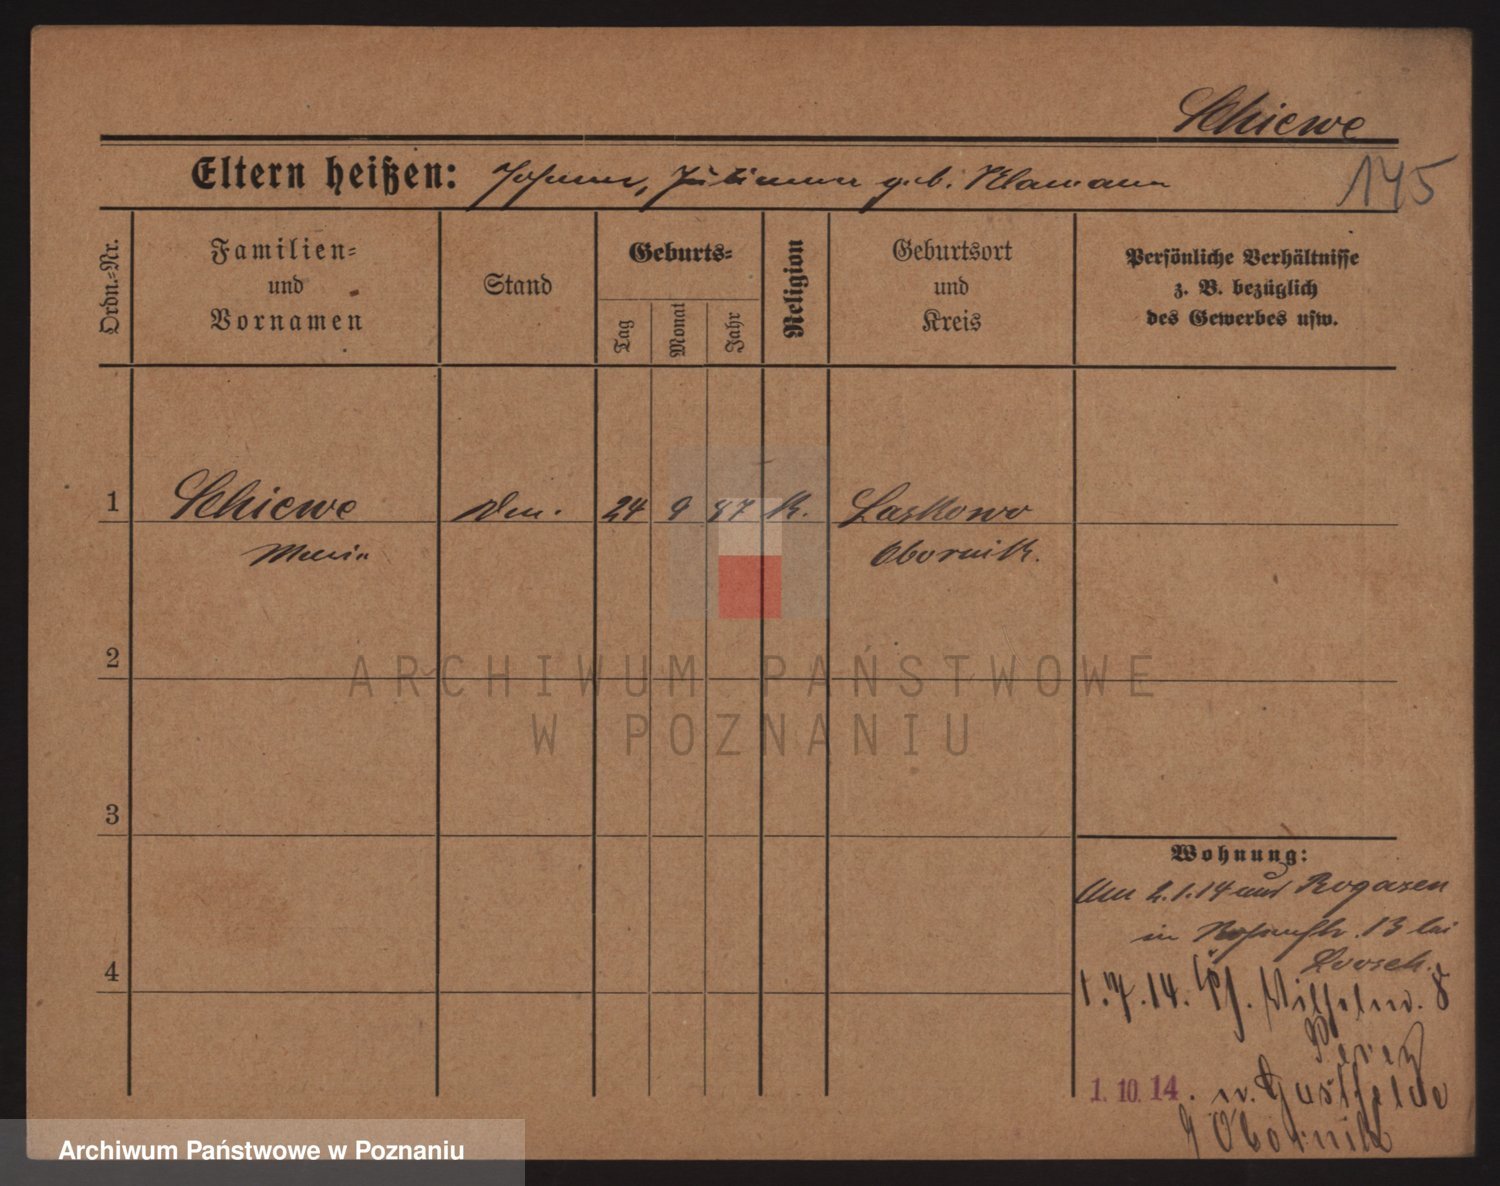 Schiewe
Eltern heißen: Johann, Julianna geb. Klamann
145
Ordn.=Nr.
Familien=
und
Vornamen
Stand
Geburts=
Tag
Monat
Jahr
Religion
Geburtsort
und
Kreis
Persönliche Verhältnisse
z. B. bezüglich
des Gewerbes usw.
1 Schiewe 24 9 87 K. Laskowo
Maria Obornik.
2
ARCHIWUM PAŃSTWOWE
W POZNANIU
3
Wohnung:
Am 2.1.14 aus Rogasen
in 13 bei
4
1.7.14. Wilhelm. 8
1.10.14. n. Gustfelde
Obornik
Archiwum Państwowe w Poznaniu